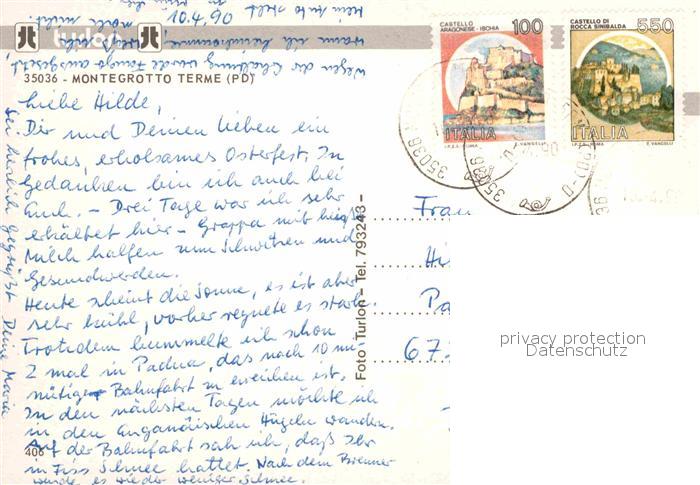 10.4.90
turlon
35036 - MONTEGROTTO TERME (PD)
Liebe Hilde,
Dir und Deinen Lieben ein
frohes, erholsames Osterfest. In
Gedanken bin ich auch bei
Euch. - Drei Tage war ich sehr
erkältet hier - Grappa mit heißer
Milch halfen zum Schwitzen und
Gesundwerden.
Heute scheint die Sonne, es ist aber
sehr kühl, vorher regnete es stark.
Trotzdem bummelte ich schon
2 mal in Padua, das nach 10 mi-
nütiger Bahnfahrt zu erreichen ist.
In den nächsten Tagen möchte ich
in den Euganäischen Hügeln wandern.
Auf der Bahnfahrt sah ich, daß Ihr
in Fiss Schnee hattet. Nach dem Brenner
wurde es wieder weniger Schnee.
Sei herzlich gegrüßt Deine Maria
wegen der
406
Foto Turlon - Tel. 793243 -
CASTELLO
ARAGONESE - ISCHIA
100
ITALIA
I.P.Z.S. ROMA
E. VANGELLI
CASTELLO DI
ROCCA SINIBALDA
550
ITALIA
I.P.Z.S. ROMA
E. VANGELLI
35036
35036
Frau
Hi
Pa
67
privacy protection
Datenschutz